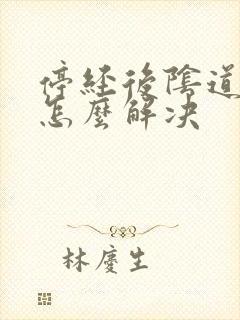 停經後陰道
怎麼解决
林慶生